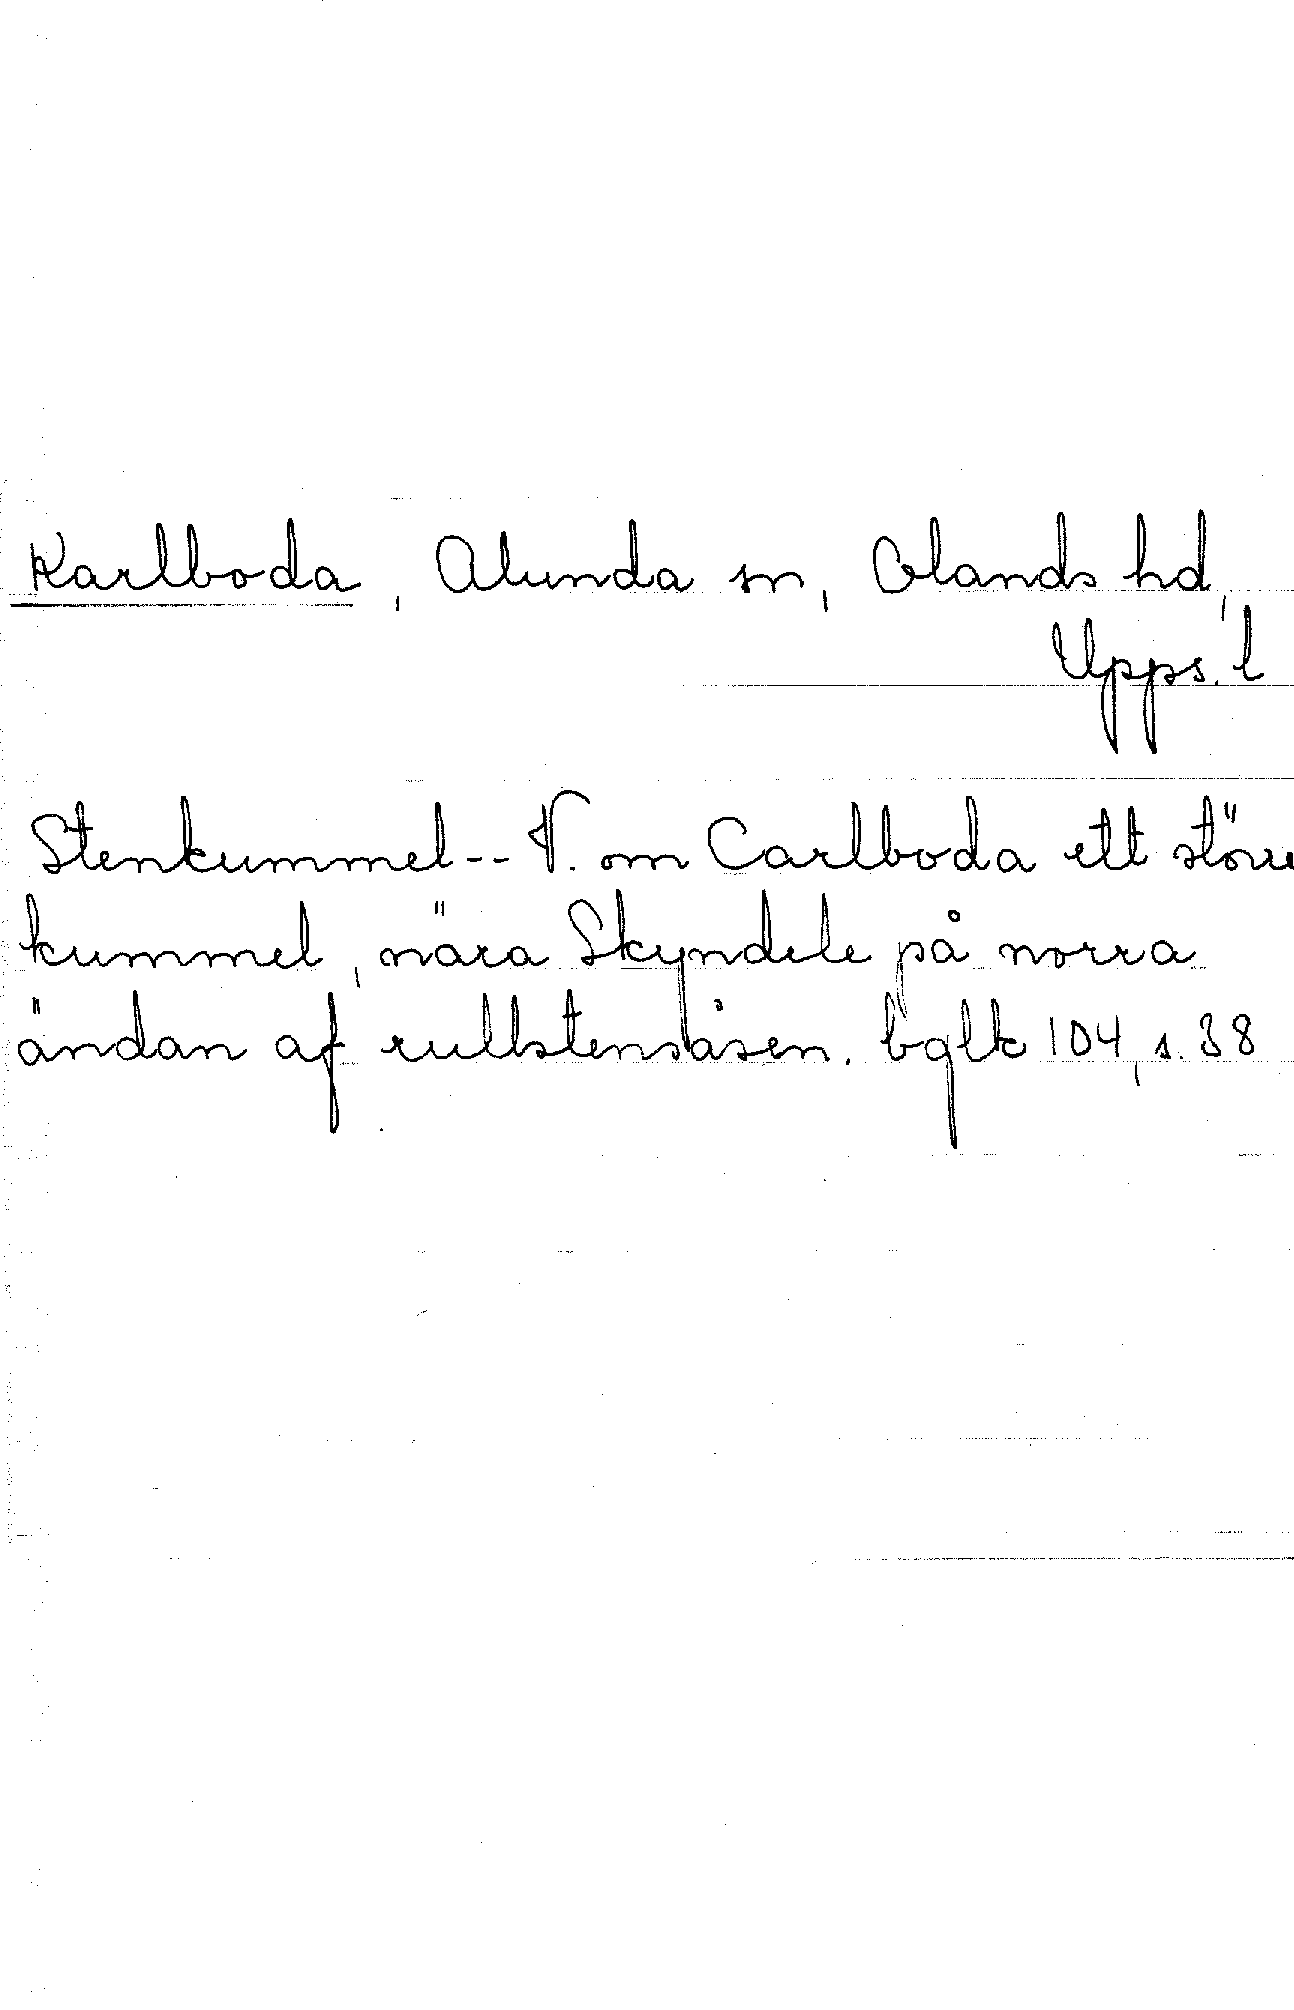 Karlboda, Alunda sn, Olands hd,
Upps. l
Stenkummel -- V. om Carlboda ett större
kummel, nära Skyndele på norra
ändan af rullstensåsen. bglk 104, s. 38